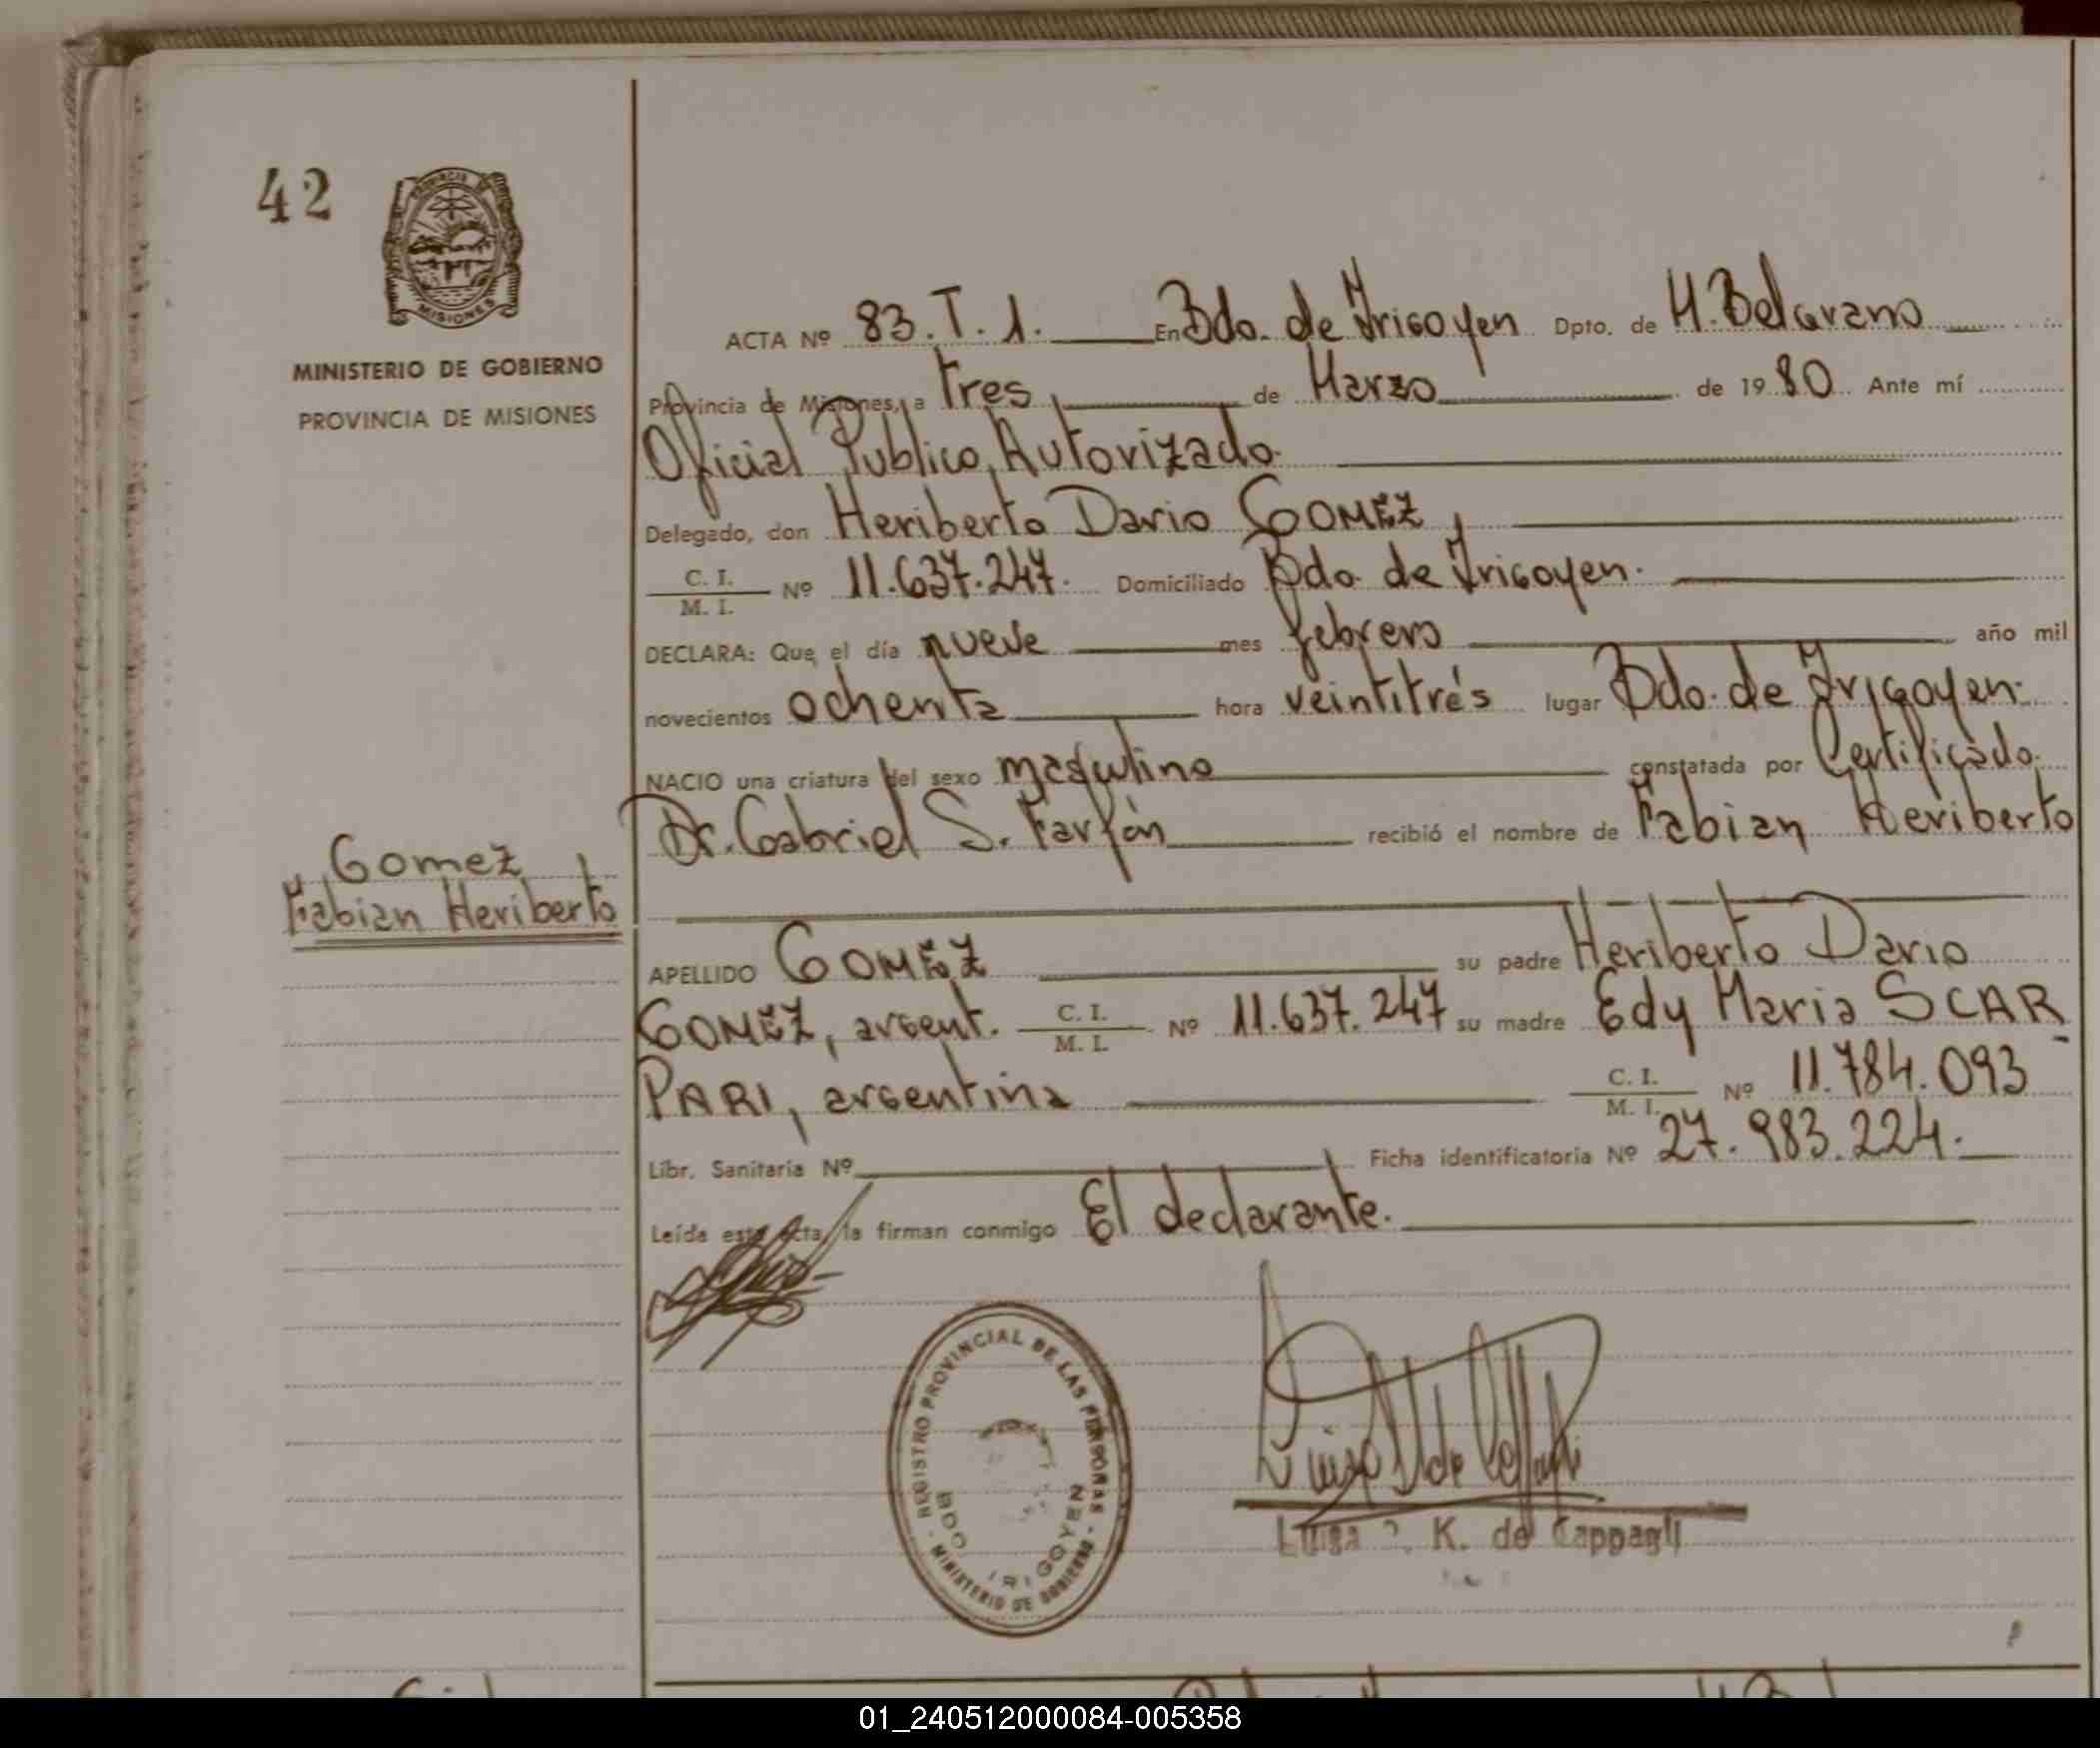 42
PROVINCIA DE
MISIONES
MINISTERIO DE GOBIERNO
PROVINCIA DE MISIONES
ACTA Nº 83.T.1. En Bdo. de Irigoyen Dpto. de M. Belgrano
Provincia de Misiones, a tres, de Marzo de 1980 Ante mí
Oficial Publico, Autorizado.
Delegado, don Heriberto Dario GOMEZ,
C. I.
M. I. Nº 11.637.247. Domiciliado Bdo. de Irigoyen.
DECLARA: Que el día nueve mes febrero año mil
novecientos ochenta hora veintitrés lugar Bdo. de Irigoyen.
NACIO una criatura del sexo masculino constatada por Certificado.
Dr. Gabriel S. Farfán recibió el nombre de Fabian Heriberto
Gomez,
Fabian Heriberto
APELLIDO GOMEZ su padre Heriberto Dario
GOMEZ, argent. C. I.
M. I. Nº 11.637.247 su madre Edy Maria SCAR-
PARI, argentina C. I.
M. I. Nº 11.784.093
Libr. Sanitaria Nº Ficha identificatoria Nº 27.983.224.
Leída esta acta, la firman conmigo El declarante.
REGISTRO PROVINCIAL DE LAS PERSONAS - MINISTERIO DE GOBIERNO -
IRIGOYEN
Luisa K. de Cappagli
01_240512000084-005358